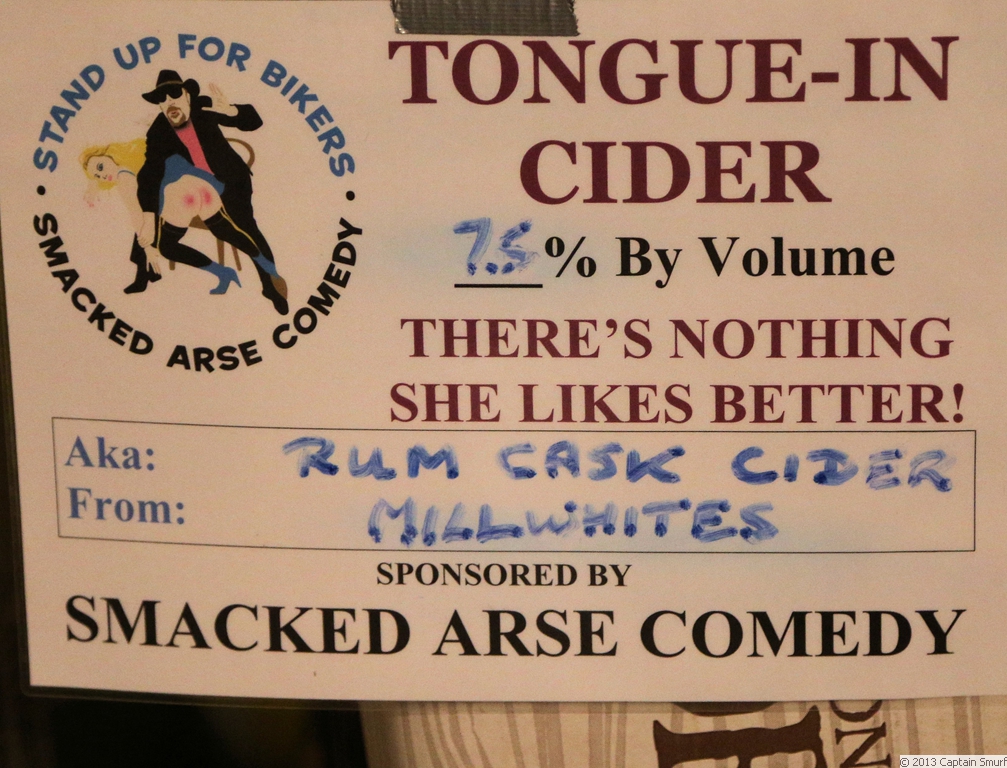 STAND UP FOR BIKERS
SMACKED ARSE COMEDY
TONGUE-IN
CIDER
7.5% By Volume
THERE'S NOTHING
SHE LIKES BETTER!
Aka: RUM CASK CIDER
From: MILLWHITES
SPONSORED BY
SMACKED ARSE COMEDY
© 2013 Captain Smurf